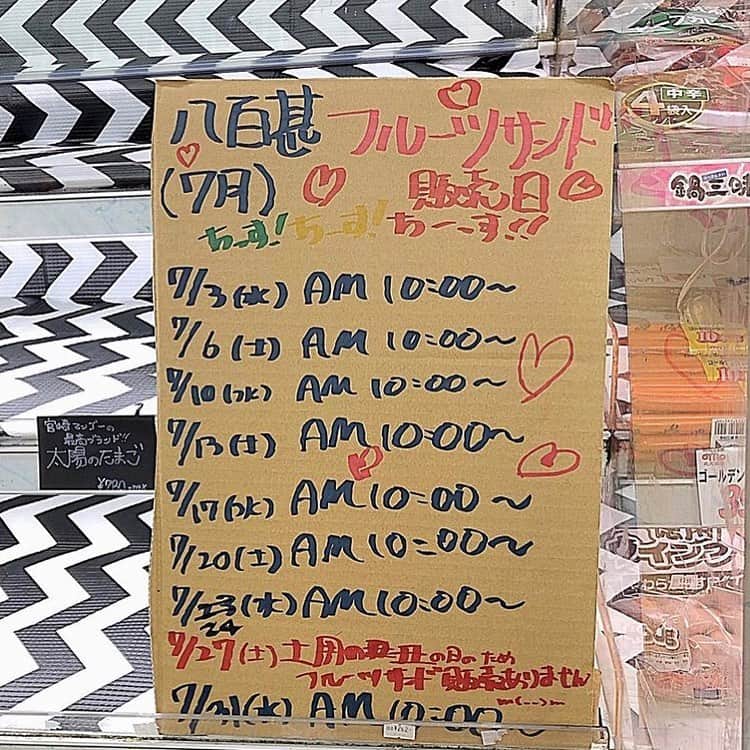 八百甚 フルーツサンド
(7月) 販売日
ちっす! ちーす! ちーっす!!
7/3(水) AM 10:00~
7/6(土) AM 10:00~
7/10(水) AM 10:00~
7/13(土) AM 10:00~
7/17(水) AM 10:00~
7/20(土) AM 10:00~
7/23(水) AM 10:00~
24
7/27(土) 土用の丑の日のため
フルーツサンド販売ありません
m(--)m
7/31(水) AM 10:00~
宮崎マンゴーの
最高ブランド!!
太陽のたまご
中辛
4袋入
鍋三昧
ゴールデン